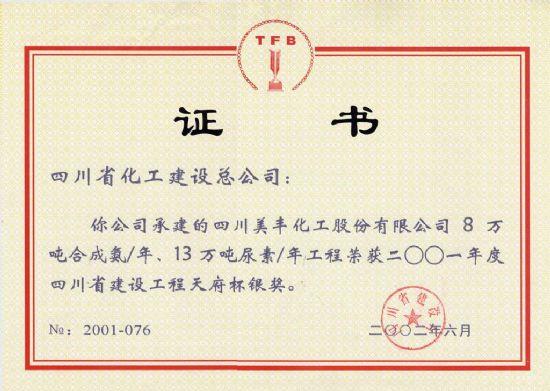 TFB
证 书
四川省化工建设总公司：
你公司承建的四川美丰化工股份有限公司 8 万
吨合成氨/年、13 万吨尿素/年工程荣获二〇〇一年度
四川省建设工程天府杯银奖。
四川省建设
№： 2001-076
二〇〇二年六月